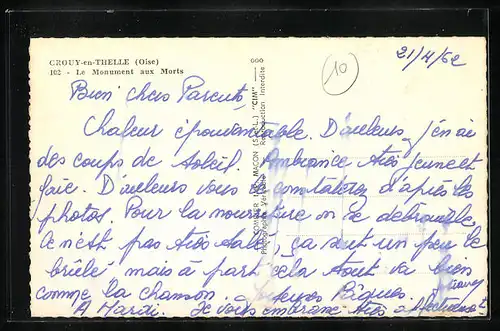 CROUY-en-THELLE (Oise)
102 - Le Monument aux Morts
21/4/62
10
Bien chers Parents,
Chaleur épouvantable. D'ailleurs, j'en ai
des coups de soleil. Ambiance très jeune et
gaie. D'ailleurs vous le constaterez d'après les
photos. Pour la nourriture on se débrouille,
ce n'est pas très sale, ça sent un peu le
brûlé mais à part cela tout va bien
comme la chanson. Joyeuses Pâques
A Mardi. Je vous embrasse très affectueusement
COMBIER IMP. MACON (S.-&-L.) "CIM"
Photographie Véritable - Reproduction Interdite